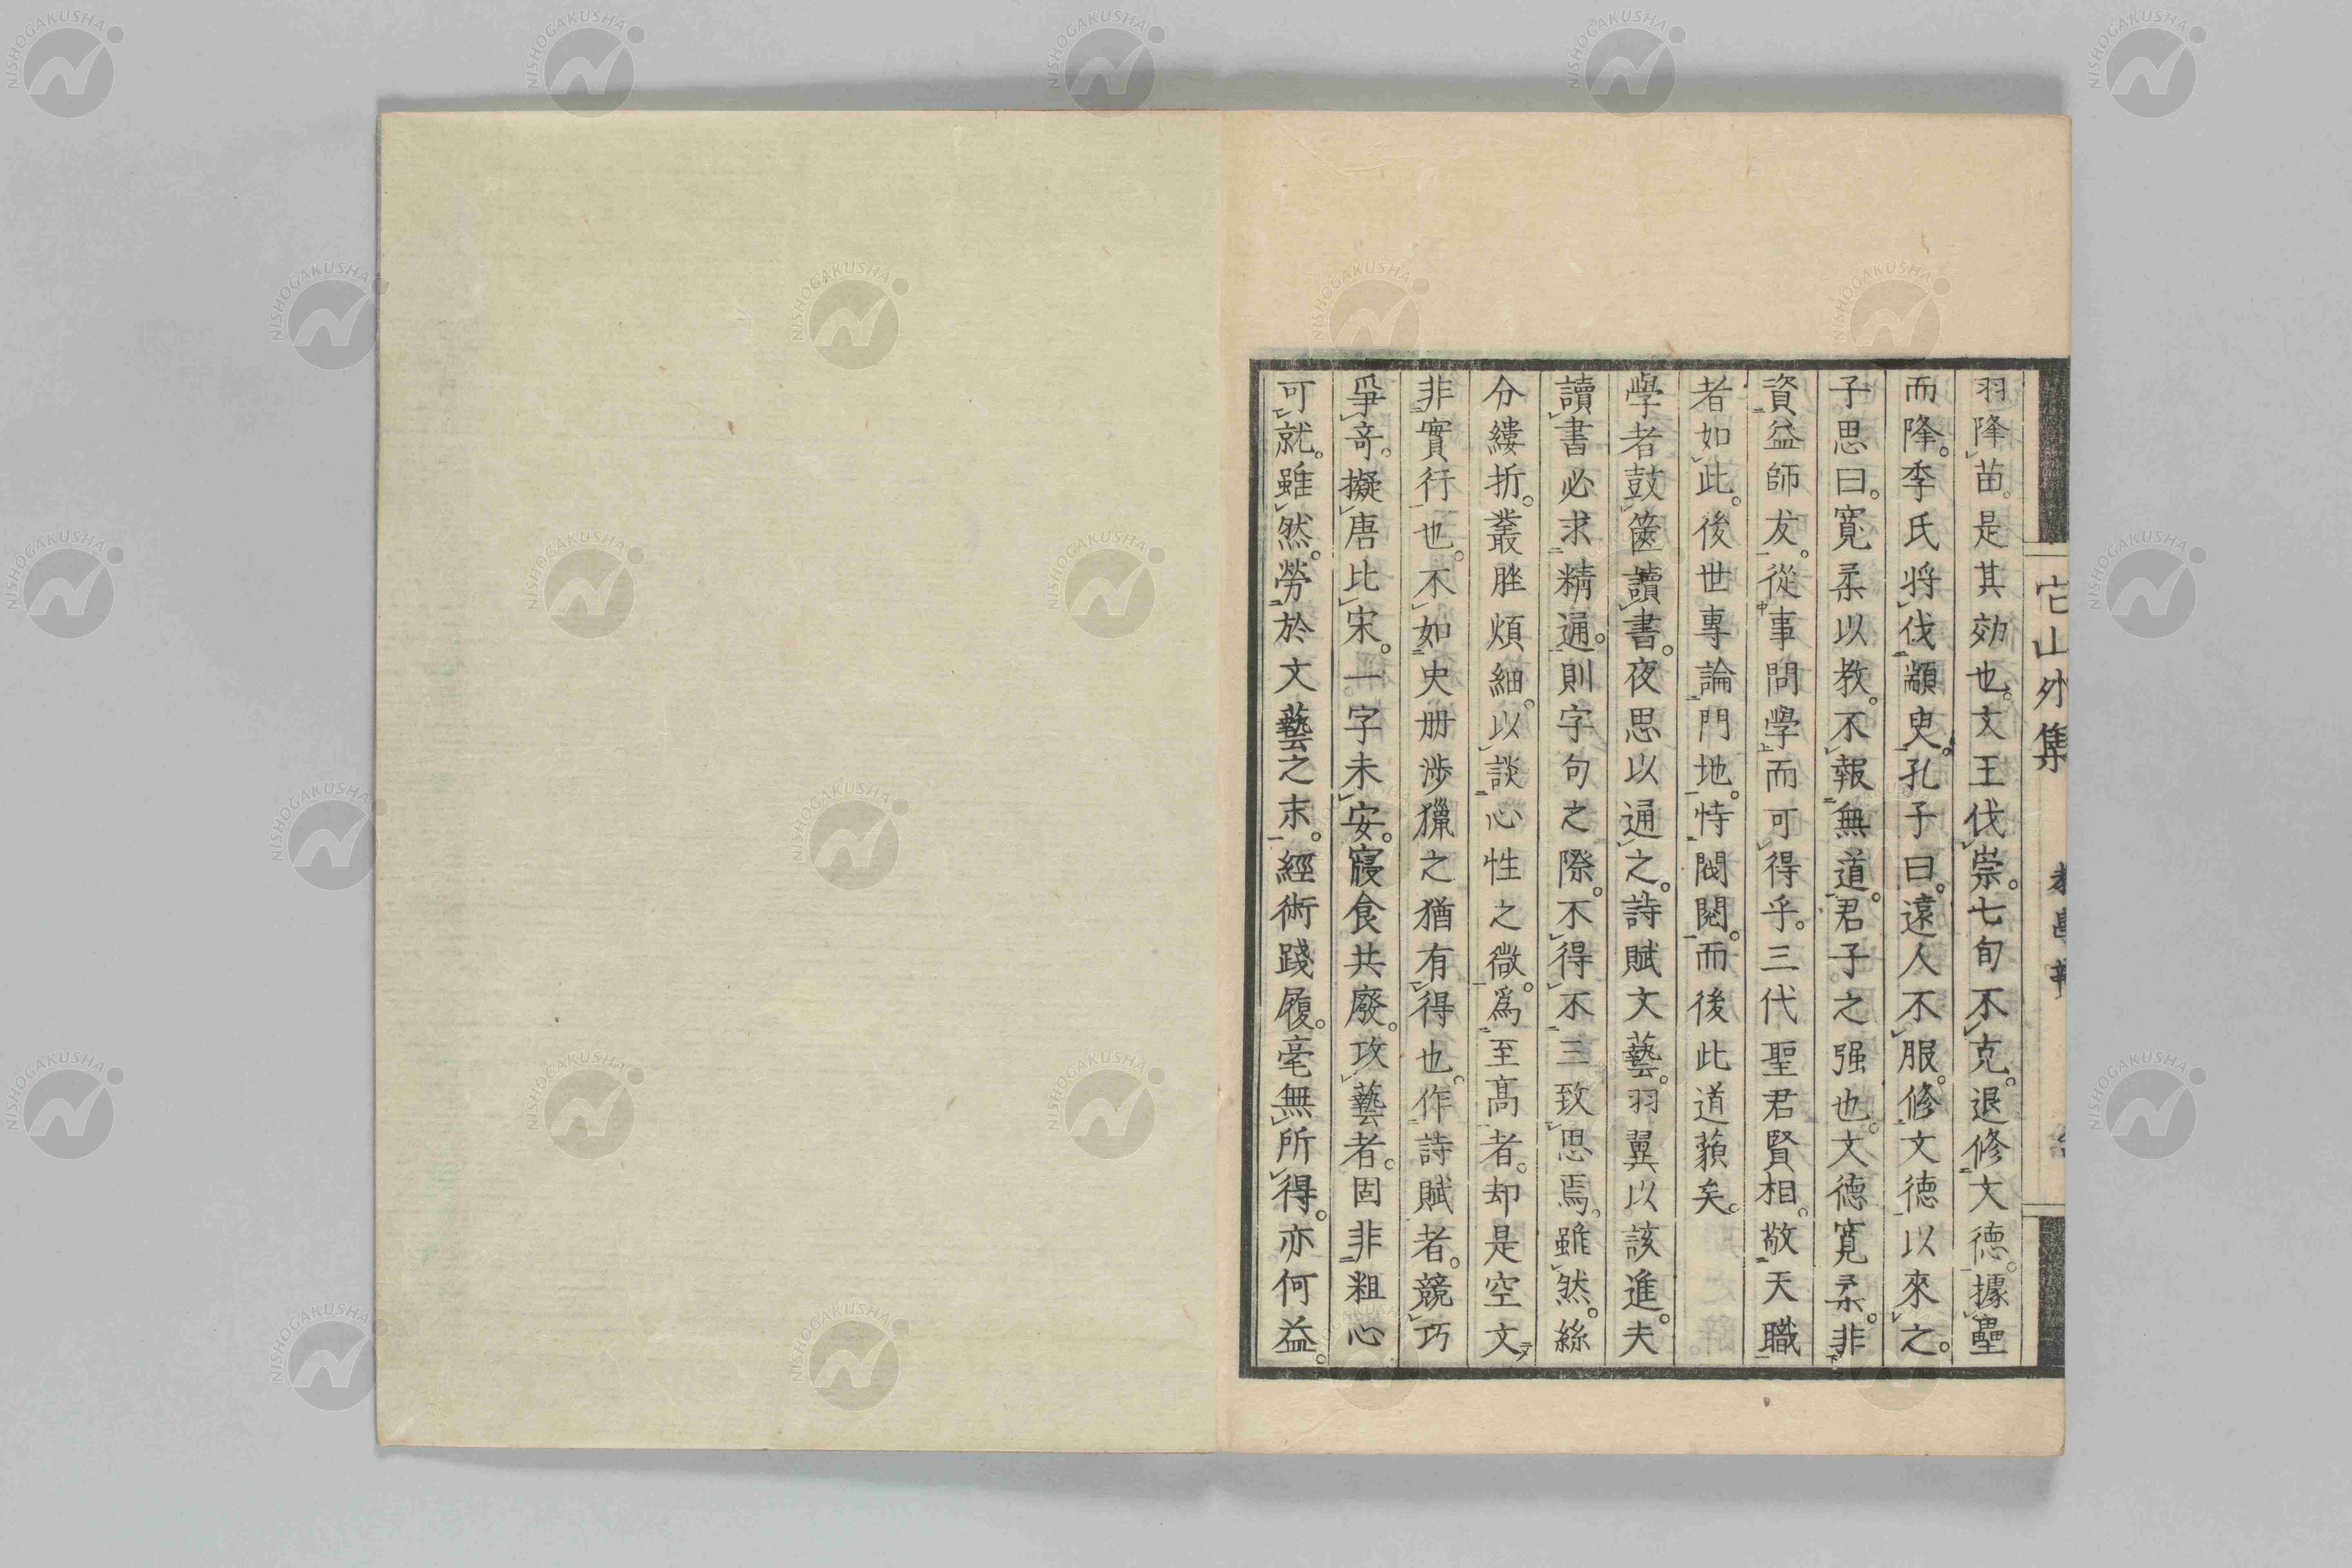 它山外集
羽降苗。是其効也。文王伐崇。七旬不克。退修文德。據壘
而降。季氏將伐顓臾。孔子曰。遠人不服。修文德以來之。
子思曰。寬柔以教。不報無道。君子之强也。文德寬柔。非
資益師友。從事問學而可得乎。三代聖君賢相。敬天職
者如此。後世專論門地。恃閥閱。而後此道蘋矣。
學者鼓篋讀書。夜思以通之。詩賦文藝。羽翼以該進。夫
讀書必求精通。則字句之際。不得不三致思焉。雖然。絲
分縷折。叢脞煩細。以談心性之微。爲至高者。却是空文
非實行也。不如史册涉獵之猶有得也。作詩賦者。競巧
爭奇。擬唐比宋。一字未安。寢食共廢。攻藝者。固非粗心
可就。雖然。勞於文藝之末。經術踐履。毫無所得。亦何益。
NISHOGAKUSHA